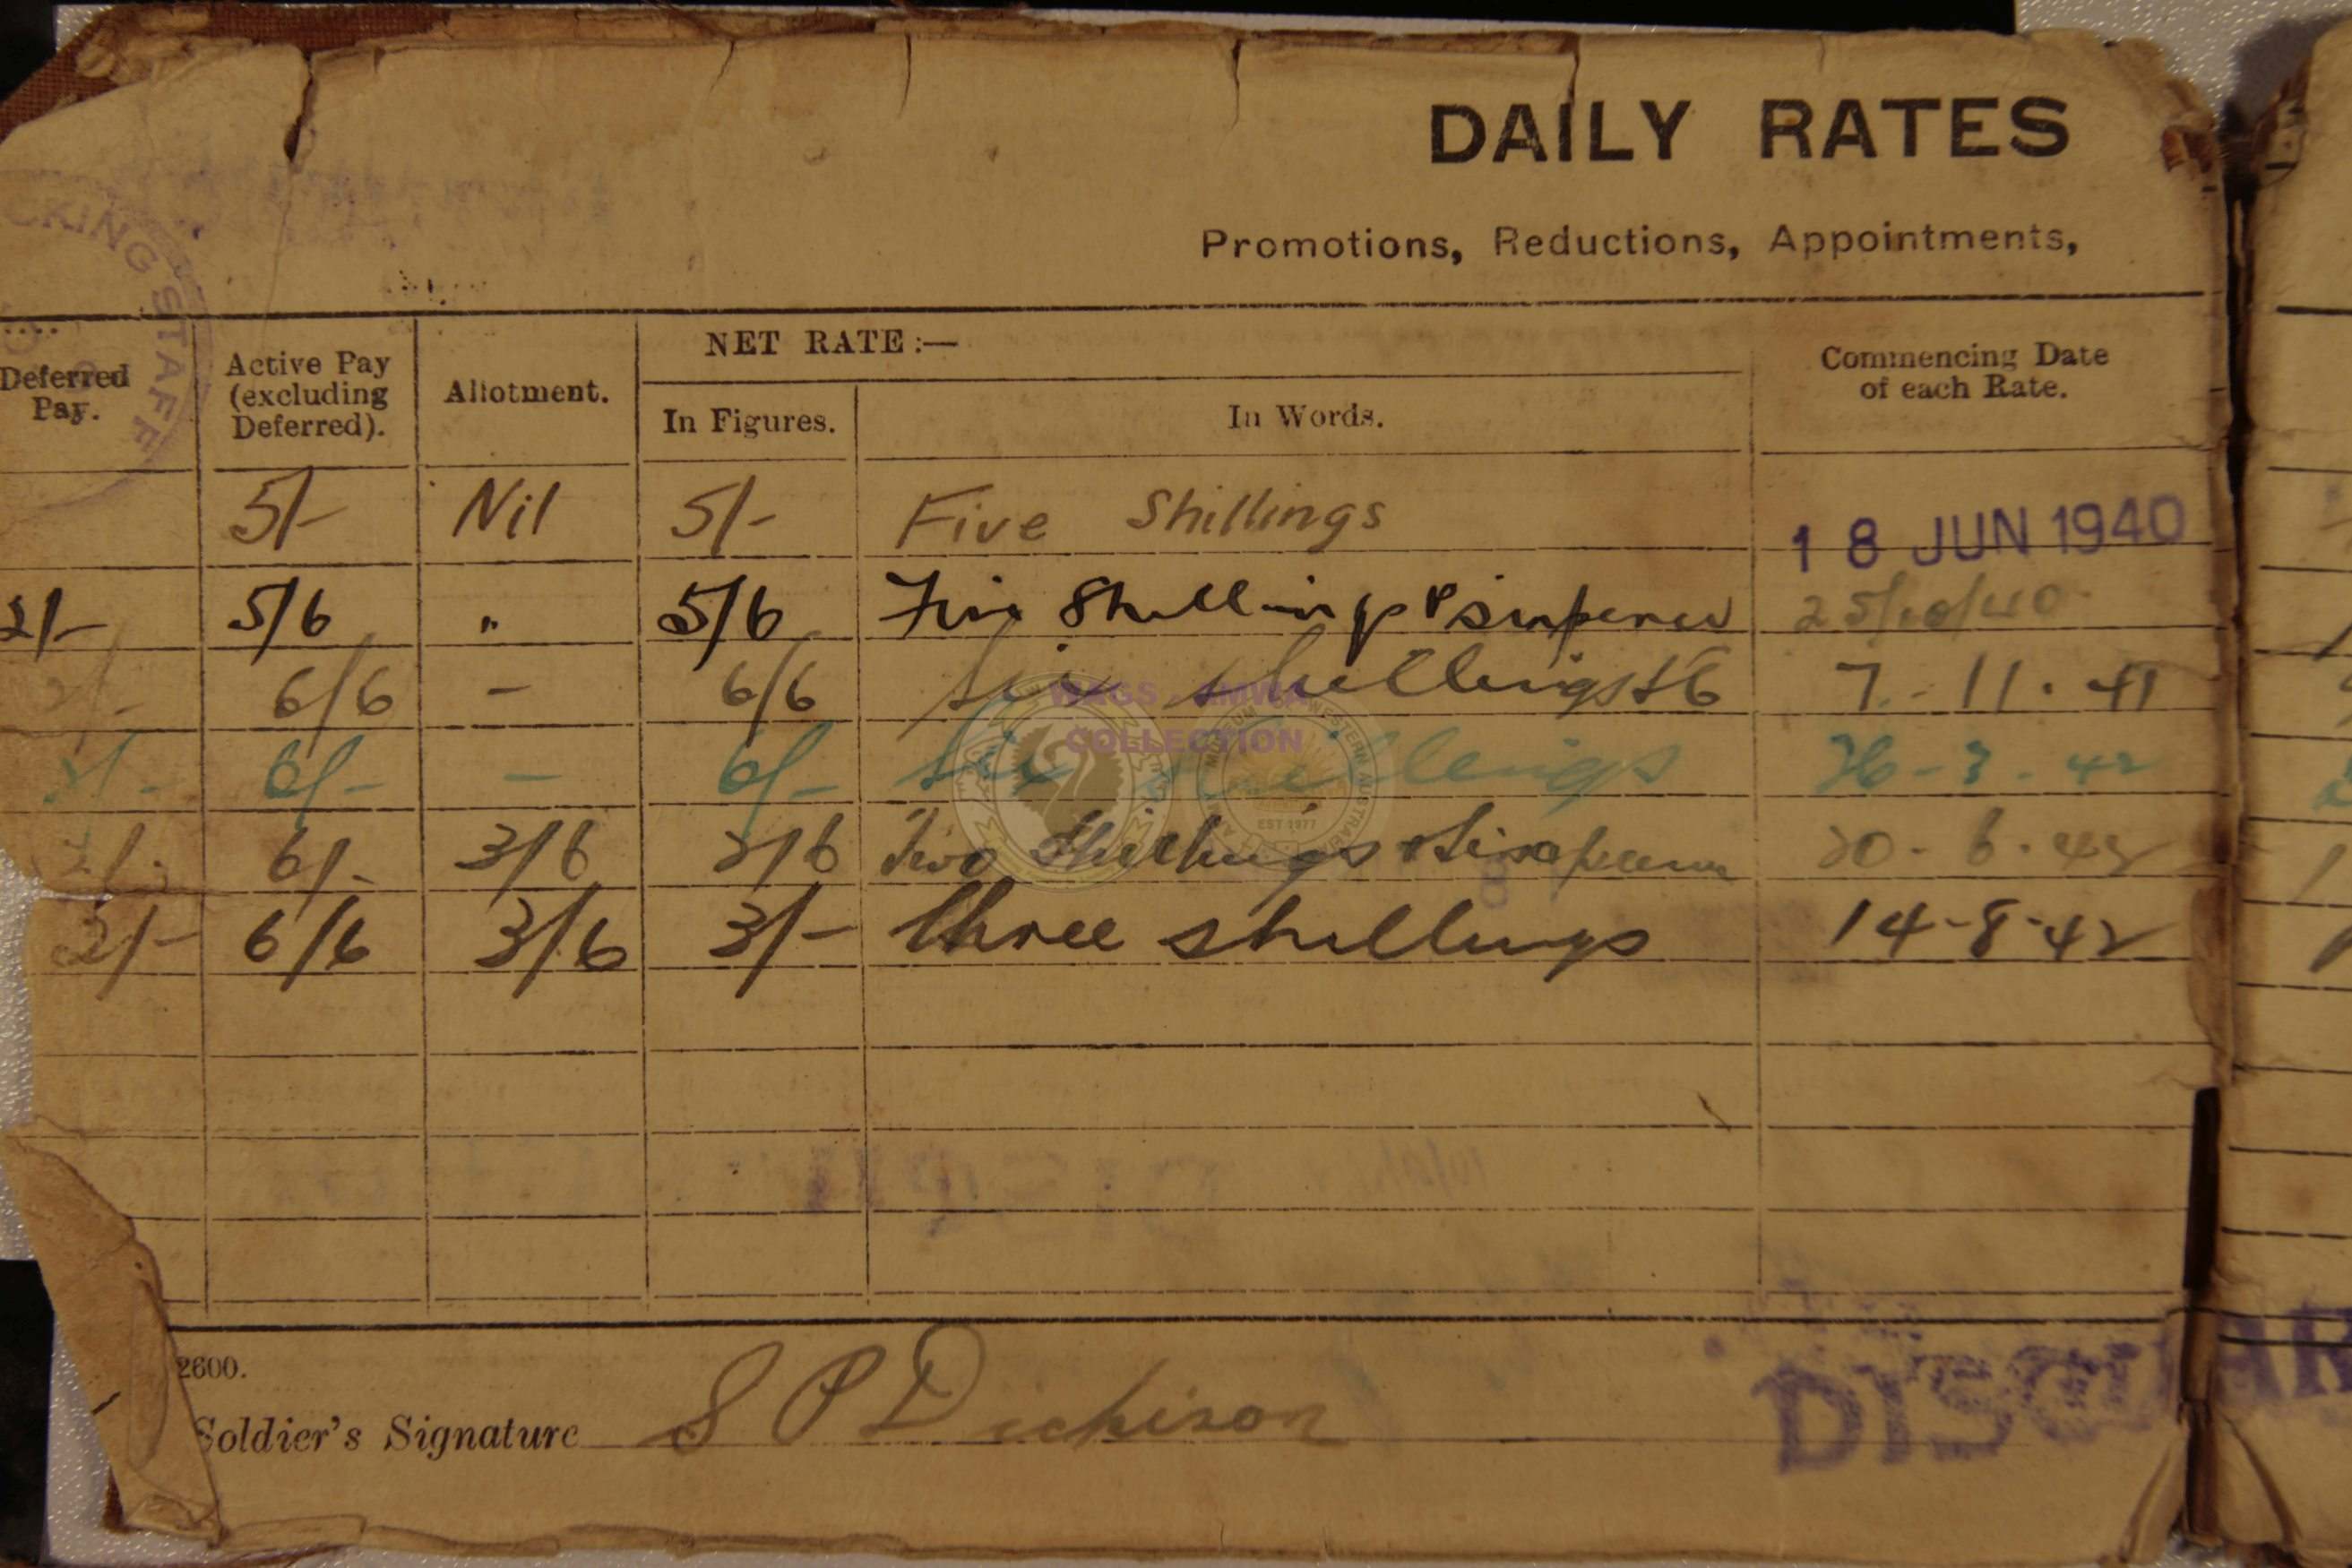 DAILY RATES
Promotions, Reductions, Appointments,
CKING STAFF
NET RATE:—
Deferred Pay. Active Pay (excluding Deferred). Allotment. In Figures. In Words. Commencing Date of each Rate.
5/- Nil 5/- Five Shillings 18 JUN 1940
2/- 5/6 " 5/6 Five Shillings & sixpence 25/10/40
2/- 6/6 - 6/6 Six shillings & 6 7.-11.41
2/- 6/- - 6/- Six shillings 26-3-42
2/- 6/- 3/6 2/6 Two Shillings & Sixpence 20-6-42
2/- 6/6 3/6 3/- three shillings 14-8-42
WAGS - AMWA
COLLECTION
MUSEUM WESTERN AUSTRAL
EST 1977
2600.
Soldier's Signature S P Dichison
DISCHAR